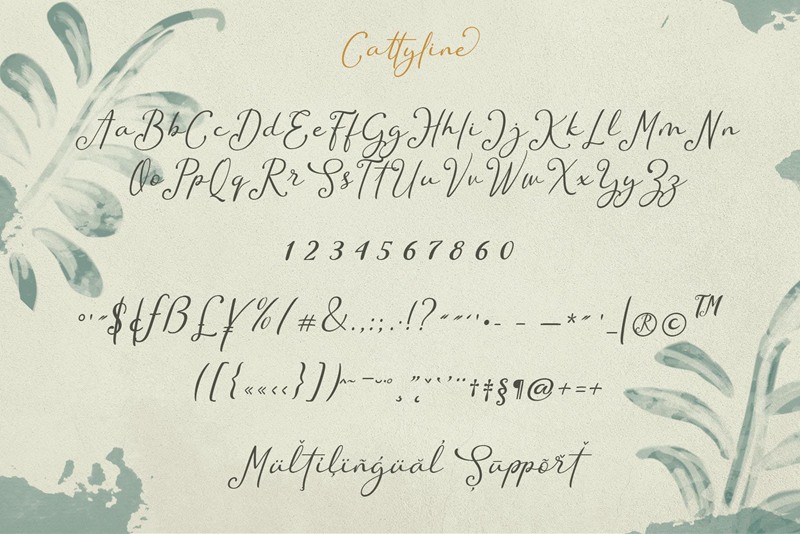 Cattyline
AaBbCcDdEeFfGgHhIiJjKkLlMmNn
OoPpQqRrSsTtUuVvWwXxYyZz
1 2 3 4 5 6 7 8 6 0
°'"$¢ƒß£¥%/#&.,:;.·!?"""''•- – —*"'_|®©™
([{««‹‹}])^~¯˘··¸"˛ˇ‘’¨†‡§¶@+=÷
Müĺťiļïñģüäĺ Şūppõřť